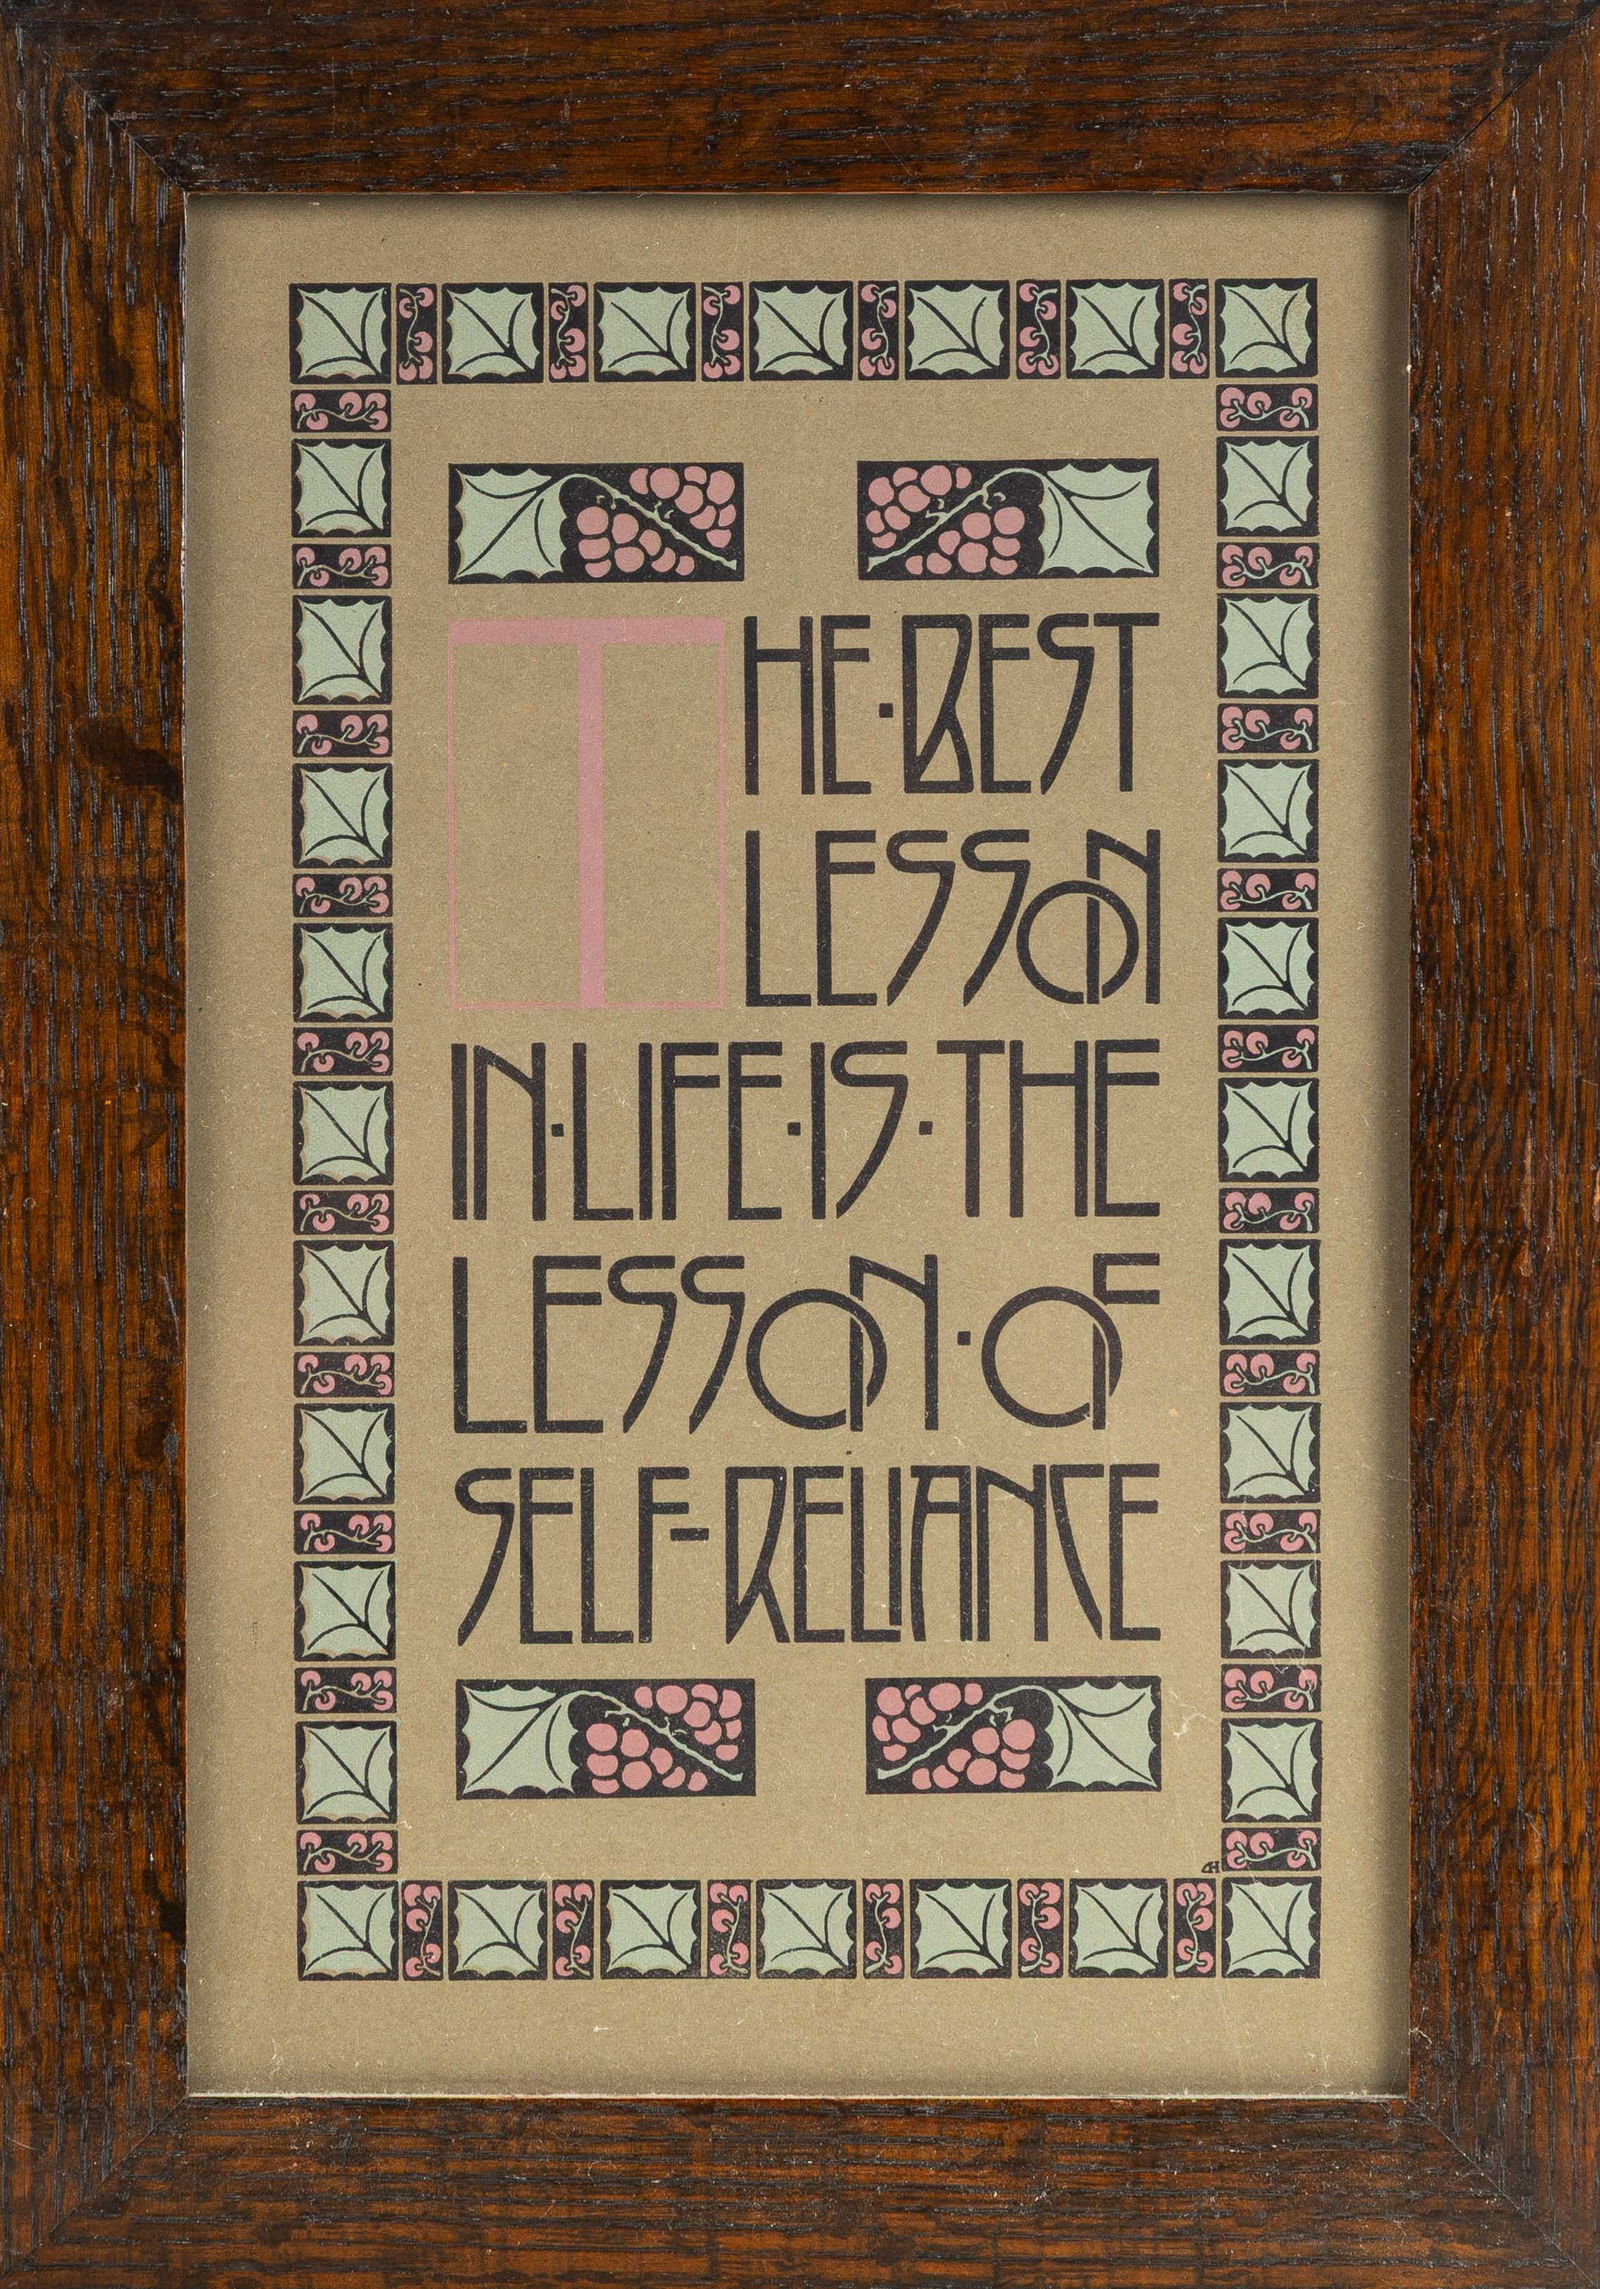 THE·BEST
LESSON
IN·LIFE·IS·THE
LESSON·OF
SELF-RELIANCE